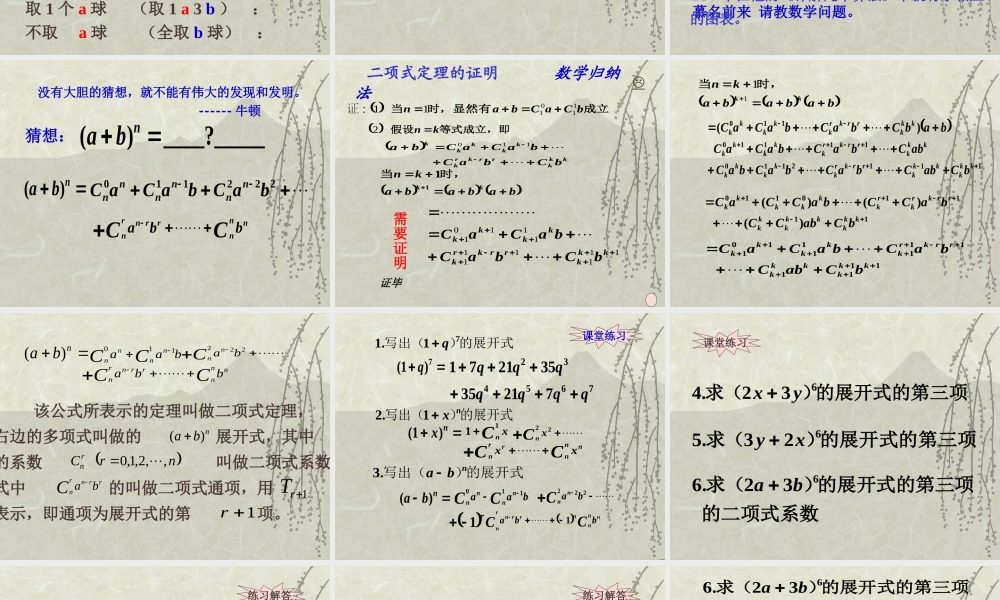 取 1 个 a 球 （取 1 a 3 b ） ：
不取 a 球 （全取 b 球） ：
慕名前来 请教数学问题。
的图表。
没有大胆的猜想，就不能有伟大的发现和发明。
------ 牛顿
猜想： (a+b)^n = ___?_____
(a+b)^n = C_n^0 a^n + C_n^1 a^{n-1} b + C_n^2 a^{n-2} b^2 + ……
+ C_n^r a^{n-r} b^r + …… + C_n^n b^n
二项式定理的证明 数学归纳
法
证：(1) 当n=1时，显然有a+b=C_1^0 a+C_1^1 b成立
(2) 假设n=k等式成立，即
(a+b)^k = C_k^0 a^k + C_k^1 a^{k-1} b + …
+ C_k^r a^{k-r} b^r + … + C_k^k b^k
当n=k+1时，
(a+b)^{k+1} = (a+b)^k (a+b)
= ………………
= C_{k+1}^0 a^{k+1} + C_{k+1}^1 a^k b + …
+ C_{k+1}^{r+1} a^{k-r} b^{r+1} + … + C_{k+1}^{k+1} b^{k+1}
需要证明
证毕
当n=k+1时，
(a+b)^{k+1} = (a+b)^k (a+b)
=(C_k^0 a^k + C_k^1 a^{k-1} b + … + C_k^r a^{k-r} b^r + … + C_k^k b^k)(a+b)
= C_k^0 a^{k+1} + C_k^1 a^k b + … + C_k^{r+1} a^{k-r} b^{r+1} + … + C_k^k ab^k
+ C_k^0 a^k b + C_k^1 a^{k-1} b^2 + … + C_k^r a^{k-r} b^{r+1} + … + C_k^{k-1} ab^k + C_k^k b^{k+1}
= C_k^0 a^{k+1} + (C_k^1 + C_k^0) a^k b + … + (C_k^{r+1} + C_k^r) a^{k-r} b^{r+1}
+ … + (C_k^k + C_k^{k-1}) ab^k + C_k^k b^{k+1}
= C_{k+1}^0 a^{k+1} + C_{k+1}^1 a^k b + … + C_{k+1}^{r+1} a^{k-r} b^{r+1}
+ … + C_{k+1}^k ab^k + C_{k+1}^{k+1} b^{k+1}
(a+b)^n = C_n^0 a^n + C_n^1 a^{n-1} b + C_n^2 a^{n-2} b^2 + ……
+ C_n^r a^{n-r} b^r + …… + C_n^n b^n
该公式所表示的定理叫做二项式定理，
右边的多项式叫做的 (a+b)^n 展开式，其中
的系数 C_n^r (r=0,1,2,…,n) 叫做二项式系数
式中 C_n^r a^{n-r} b^r 的叫做二项式通项，用 T_{r+1}
表示，即通项为展开式的第 r+1 项。
课堂练习
1.写出（1+q）^7的展开式
(1+q)^7 = 1+7q+21q^2+35q^3
+35q^4+21q^5+7q^6+q^7
2.写出（1+x）^n的展开式
(1+x)^n = 1+C_n^1 x+C_n^2 x^2+……
+C_n^r x^r+……+C_n^n x^n
3.写出（a−b）^n的展开式
(a−b)^n = C_n^0 a^n − C_n^1 a^{n-1} b + C_n^2 a^{n-2} b^2 − ……
+(−1)^r C_n^r a^{n-r} b^r + …… + (−1)^n C_n^n b^n
课堂练习
4.求（2x+3y）^6的展开式的第三项
5.求（3y+2x）^6的展开式的第三项
6.求（2a+3b）^6的展开式的第三项
的二项式系数
练习解答
练习解答
6.求（2a+3b）^6的展开式的第三项